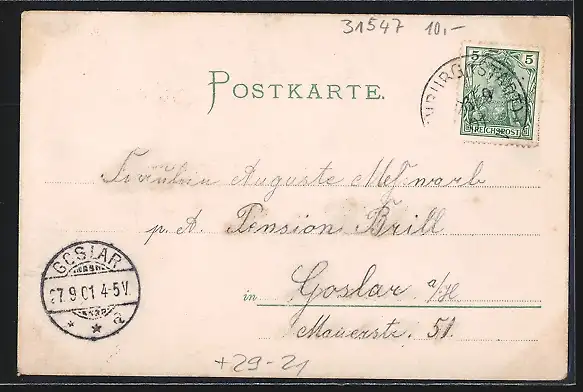 31547 10,-
POSTKARTE.
5 5
REICHSPOST
Fräulein Auguste
p. A. Pension Brill
in Goslar a/H
Mauerstr. 51.
GOSLAR
27.9.01 4-5V
* * a
+29-21